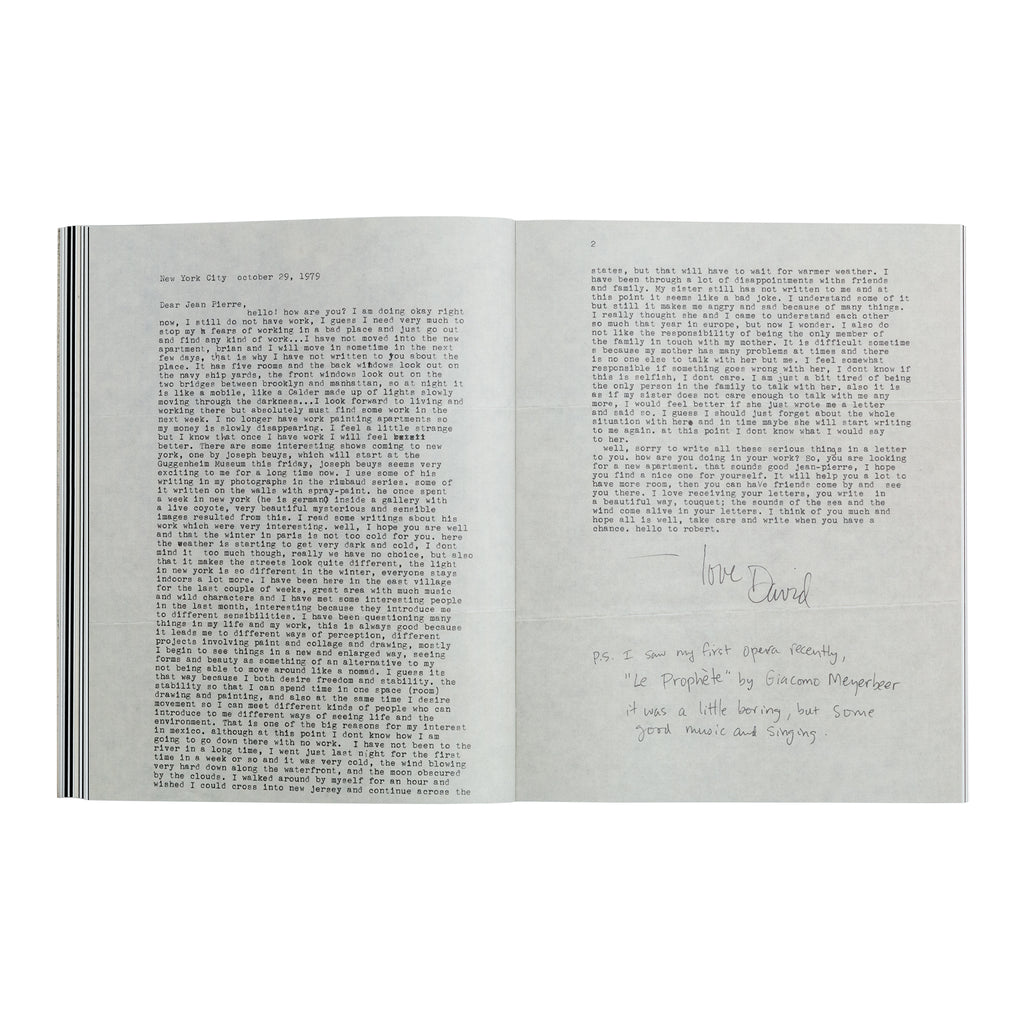 New York City  october 29, 1979
Dear Jean Pierre,
hello! how are you? I am doing okay right
now, I still do not have work, I guess I need very much to
stop my fears of working in a bad place and just go out
and find any kind of work...I have not moved into the new
apartment, brian and I will move in sometime in the next
few days, that is why I have not written to you about the
place. It has five rooms and the back windows look out on
the navy ship yards, the front windows look out on the
two bridges between brooklyn and manhattan, so at night it
is like a mobile, like a Calder made up of lights slowly
moving through the darkness...I look forward to living and
working there but absolutely must find some work in the
next week. I no longer have work painting apartments so
my money is slowly disappearing. I feel a little strange
but I know that once I have work I will feel
better. There are some interesting shows coming to new
york, one by joseph beuys, which will start at the
Guggenheim Museum this friday, joseph beuys seems very
exciting to me for a long time now. I use some of his
writing in my photographs in the rimbaud series. some of
it written on the walls with spray-paint. he once spent
a week in new york (he is german) inside a gallery with
a live coyote, very beautiful mysterious and sensible
images resulted from this. I read some writings about his
work which were very interesting. well, I hope you are well
and that the winter in paris is not too cold for you. here
the weather is starting to get very dark and cold, I dont
mind it  too much though, really we have no choice, but also
that it makes the streets look quite different, the light
in new york is so different in the winter, everyone stays
indoors a lot more. I have been here in the east village
for the last couple of weeks, great area with much music
and wild characters and I have met some interesting people
in the last month, interesting because they introduce me
to different sensibilities. I have been questioning many
things in my life and my work, this is always good because
it leads me to different ways of perception, different
projects involving paint and collage and drawing, mostly
I begin to see things in a new and enlarged way, seeing
forms and beauty as something of an alternative to my
not being able to move around like a nomad. I guess its
that way because I both desire freedom and stability. the
stability so that I can spend time in one space (room)
drawing and painting, and also at the same time I desire
movement so I can meet different kinds of people who can
introduce to me different ways of seeing life and the
environment. That is one of the big reasons for my interest
in mexico. although at this point I dont know how I am
going to go down there with no work.  I have not been to the
river in a long time, I went just last night for the first
time in a week or so and it was very cold, the wind blowing
very hard down along the waterfront, and the moon obscured
by the clouds. I walked around by myself for an hour and
wished I could cross into new jersey and continue across the
2
states, but that will have to wait for warmer weather. I
have been through a lot of disappointments withs friends
and family. My sister still has not written to me and at
this point it seems like a bad joke. I understand some of it
but still it makes me angry and sad because of many things.
I really thought she and I came to understand each other
so much that year in europe, but now I wonder. I also do
not like the responsibility of being the only member of
the family in touch with my mother. It is difficult sometime
s because my mother has many problems at times and there
is no one else to talk with her but me. I feel somewhat
responsible if something goes wrong with her, I dont know if
this is selfish, I dont care. I am just a bit tired of being
the only person in the family to talk with her, also it is
as if my sister does not care enough to talk with me any
more, I would feel better if she just wrote me a letter
and said so. I guess I should just forget about the whole
situation with here and in time maybe she will start writing
to me again. at this point I dont know what I would say
to her.
well, sorry to write all these serious things in a letter
to you. how are you doing in your work? So, you are looking
for a new apartment. that sounds good jean-pierre, I hope
you find a nice one for yourself. It will help you a lot to
have more room, then you can have friends come by and  see
you there. I love receiving your letters, you write  in
a beautiful way, touquet; the sounds of the sea and the
wind come alive in your letters. I think of you much and
hope all is well, take care and write when you have a
chance. hello to robert.
love
David
P.S. I saw my first opera recently,
"Le Prophète" by Giacomo Meyerbeer
it was a little boring, but some
good music and singing.